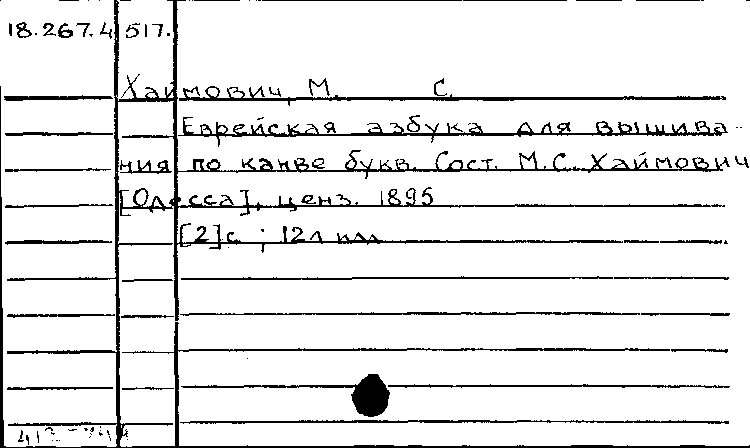 18.267.4 517.
Хаймович, М. С.
Еврейская азбука для вышива-
ния по канве букв. Сост. М.С. Хаймович
[Одесса], ценз. 1895
[2]с ; 12л илл